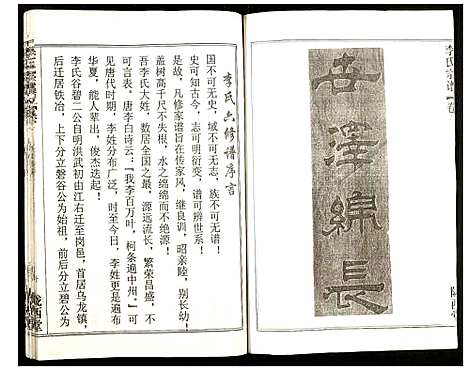 李氏宗谱 卷一
世澤綿長
陇西堂
李氏六修谱序言
国不可无史，域不可无志，族不可无谱！
史可知古今，志可明衍变，谱可辨世系。
是故，凡修家谱旨在传家风，继良训，昭亲睦，别长幼！
盖树高千尺不失根，水之绵绵而不绝源！
吾李氏大姓，数居全国之最，源远流长，繁荣昌盛，不
可言表。唐李白诗云：『我李百万叶，柯条遍中州。』可
见唐代时期，李姓分布广泛，时至今日，李姓更是遍布
华夏，能人辈出，俊杰迭起！
李氏谷碧二公自明洪武初由江右迁至岗邑，首居乌龙镇，
后迁居铁冶，上下分立磐谷公为始祖，前后分立碧公为
陇西堂